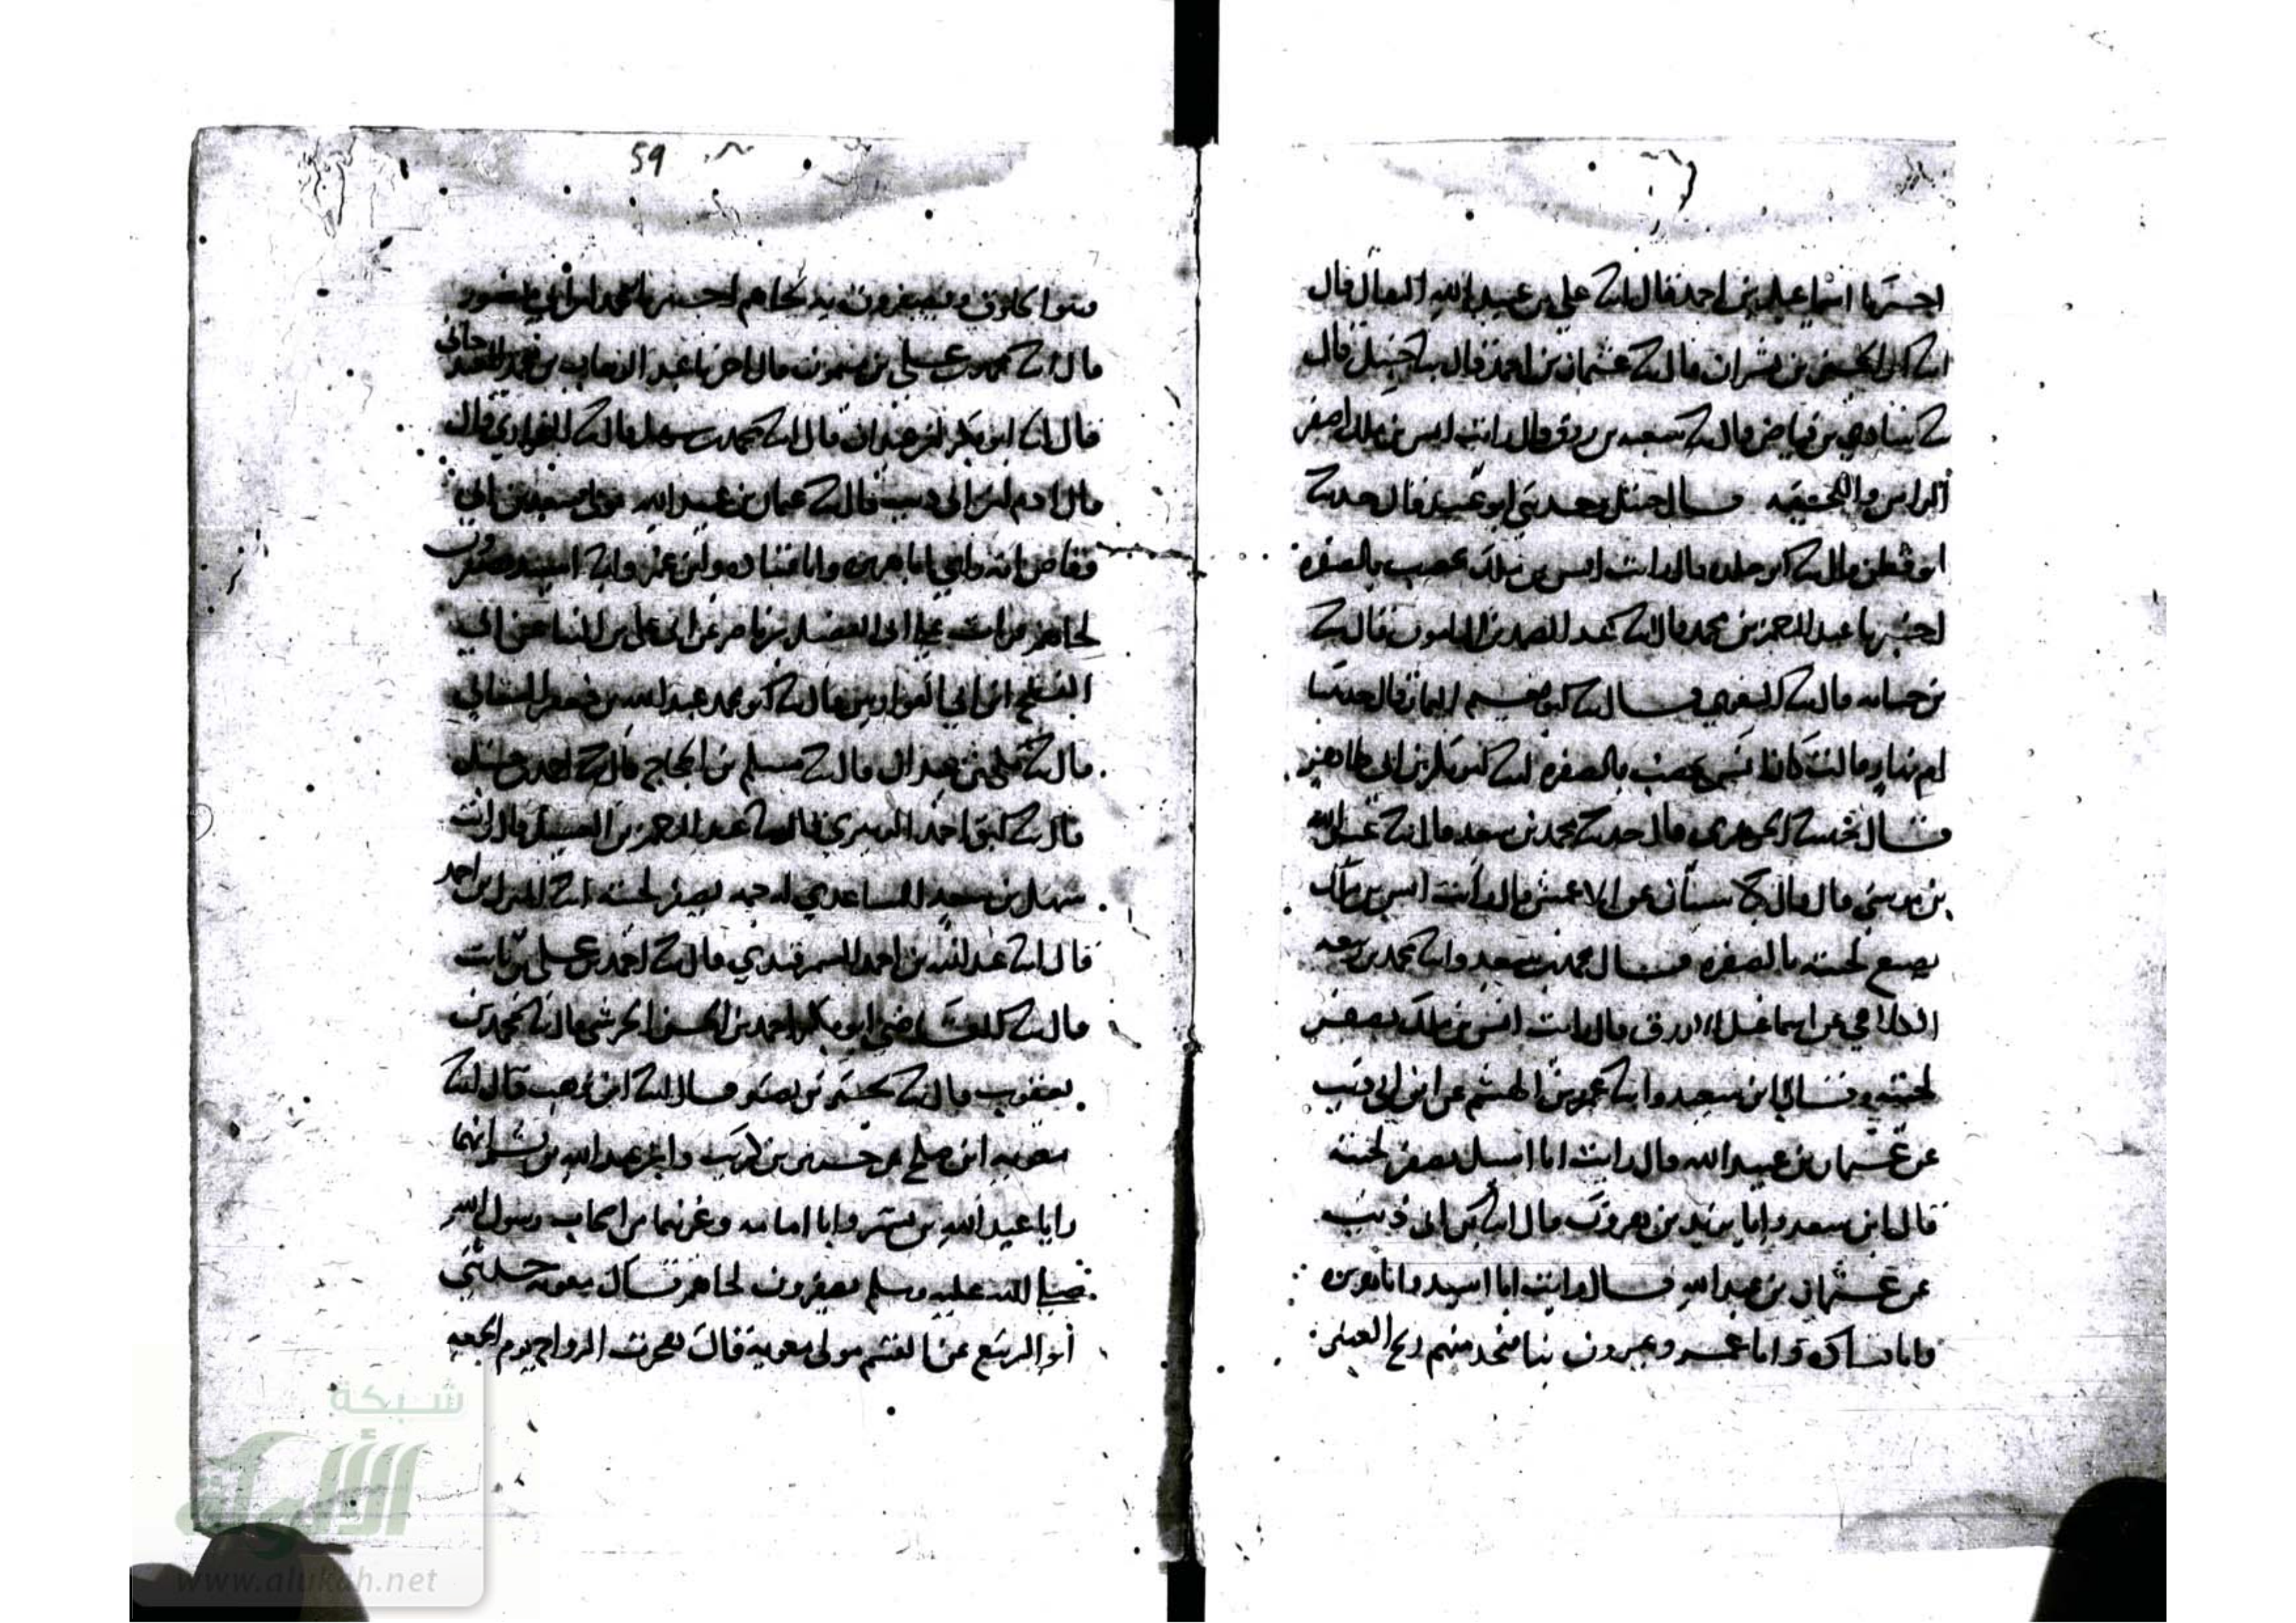 اخبرنا اسماعيل بن احمد قال انا علي بن عبيد الله البقال قال
انا ابو الحسين بن بشران قال نا عثمان بن احمد قال نا حنبل قال
نا قال نا سعيد بن قال رايت انس بن ملك اصفر
الراس واللحيه قال حنبل وحدثني ابو عبيد قال حدثنا
ابو قطن قال نا ابو خلده قال رايت انس بن ملك يخضب بالصفره
اخبرنا عبد الرحمن بن محمد قال نا عبد الصمد بن المامون قال نا
بن حبابه قال نا البغوي قال نا قال حدثتنا
ام قالت كان انس يخضب بالصفره انا ابو بكر بن ابي طاهر
قال انا الجوهري قال حدثنا محمد بن سعد قال انا عبيد الله
بن موسى قال قال نا سنان عن الاعمش قال رايت انس بن ملك
يصبغ لحيته بالصفره قال محمد بن سعد وانا محمد بن ربيعه
الكلابي عن اسماعيل الازرق قال رايت انس بن ملك يصفر
لحيته وقال ابن سعد وانا عمرو بن الهيثم عن ابن ابي ذيب
عن عثمان بن عبيد الله قال رايت ابا اسيد يصفر لحيته
قال ابن سعد وانا يزيد بن هرون قال انا بن ابي ذيب
عن عثمان بن عبيد الله قال رايت ابا اسيد وابا هريره
وابا قتاده وابا عمر ويمرون بنا فنجد منهم ريح العبير
59
وهو الخلوق ويصفرون به لحاهم اخبرنا محمد بن ابي منصور
قال انا محمد بن علي بن ميمون قال اخبرنا عبد الوهاب بن محمد الغندجاني
قال انا ابو بكر بن عبدان قال انا محمد بن سهل قال نا البخاري قال
قال ادم نا ابن ابي ذيب قال نا عثمان بن عبيد الله مولى سعد بن ابي
وقاص انه راى ابا هريره وابا قتاده وابن عمر وابا اسيد يصفرون
لحاهم قرات على ابي الفضل بن ناصر عن ابي علي بن البنا عن ابي
الفتح ابن ابي الفوارس قال نا ابو محمد عبد الله بن جعفر
قال نا مكي بن عبدان قال نا مسلم بن الحجاج قال نا احمد بن حنبل
قال نا ابو احمد الزبيري قال نا عبد الرحمن بن الغسيل قال رايت
سهل بن سعد الساعدي له جمه يصفر لحيته انا بن احمد
قال انا عبد الله بن احمد السمرقندي قال نا احمد بن علي بن ثابت
قال نا القاضي ابو بكر احمد بن الحسن الحرشي قال نا محمد بن
يعقوب قال نا بحر بن نصر قال نا ابن وهب قال نا
معويه ابن صلح عن بن كريب وابن عبد الله بن بسر انهما
رايا عبد الله بن بسر وابا امامه وغيرهما من اصحاب رسول الله
صلى الله عليه وسلم يصفرون لحاهم قال معويه حدثني
ابو الربيع عن القسم مولى معويه قال هجرت الرواح يوم الجمعه
شبكة
الألوكة
www.alukah.net